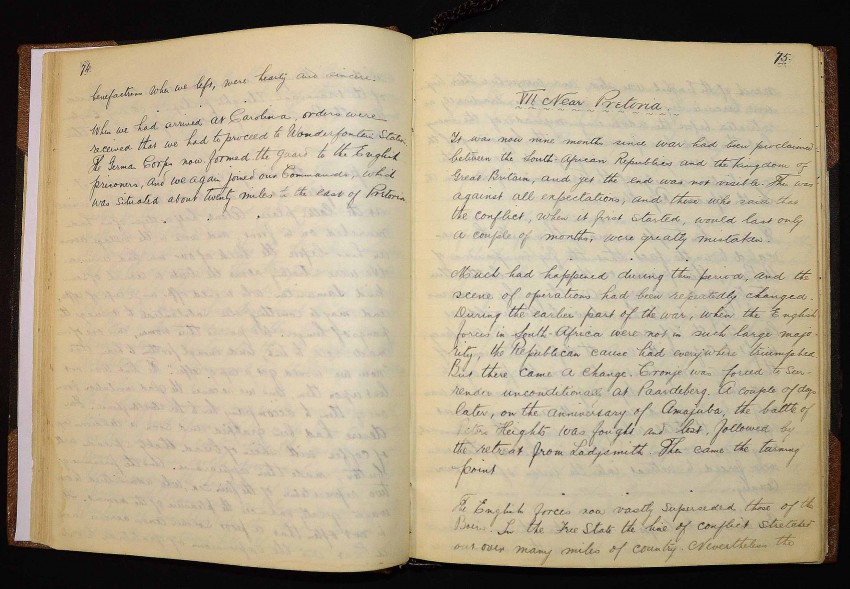 74.
benefactress when we left, were hearty and sincere.
When we had arrived at Carolina, orders were
received that we had to proceed to Wonderfontein Station
The German Corps now formed the guard to the English
prisoners, and we again joined our Commando, which
was situated about twenty miles to the east of Pretoria
75.
VII Near Pretoria.
It was now nine months since war had been proclaimed
between the South-African Republics and the Kingdom of
Great Britain, and yet the end was not visible. The was
against all expectations, and those who said that
the conflict, when it first started, would last only
a couple of months, were greatly mistaken.
Much had happened during this period, and the
scene of operations had been repeatedly changed.
During the earlier part of the war, when the English
forces in South-Africa were not in such large majo-
rity, the Republican cause had everywhere triumphed
But there came a change. Cronje was forced to sur-
render unconditionally at Paardeberg. A couple of days
later, on the anniversary of Amajuba, the battle of
Heights was fought and lost, followed by
the retreat from Ladysmith. Then came the turning
point
The English forces now vastly superseded those of the
Boers. In the Free State the line of conflict stretched
out over many miles of country. Nevertheless the